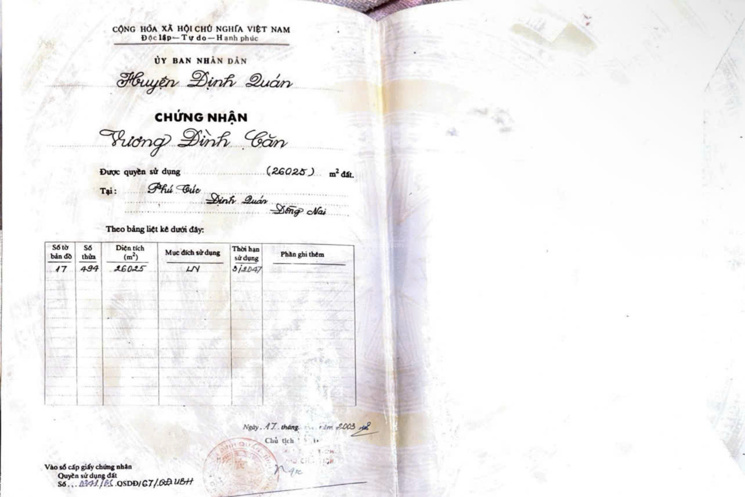 CỘNG HÒA XÃ HỘI CHỦ NGHĨA VIỆT NAM
Độc lập — Tự do — Hạnh phúc
ỦY BAN NHÂN DÂN
Huyện Định Quán
CHỨNG NHẬN
Vương Đình Căn
Được quyền sử dụng (26025) m² đất.
Tại: Phú Túc
Định Quán
Đồng Nai
Theo bảng liệt kê dưới đây:
Số tờ bản đồ Số thửa Diện tích (m²) Mục đích sử dụng Thời hạn sử dụng Phần ghi thêm
17 494 26025 LN 9/2047
Ngày 17 tháng năm 2003
Chủ tịch
Vào sổ cấp giấy chứng nhận
Quyền sử dụng đất
Số QSDĐ/